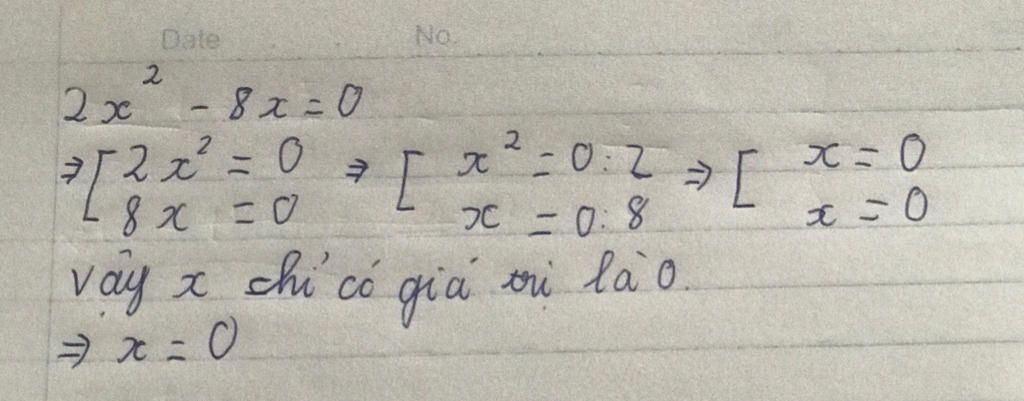 Date No.
2x² - 8x = 0
⇒ [ 2x² = 0 ⇒ [ x² = 0 : 2 ⇒ [ x = 0
8x = 0 x = 0 : 8 x = 0
Vậy x chỉ có giá trị là 0.
⇒ x = 0